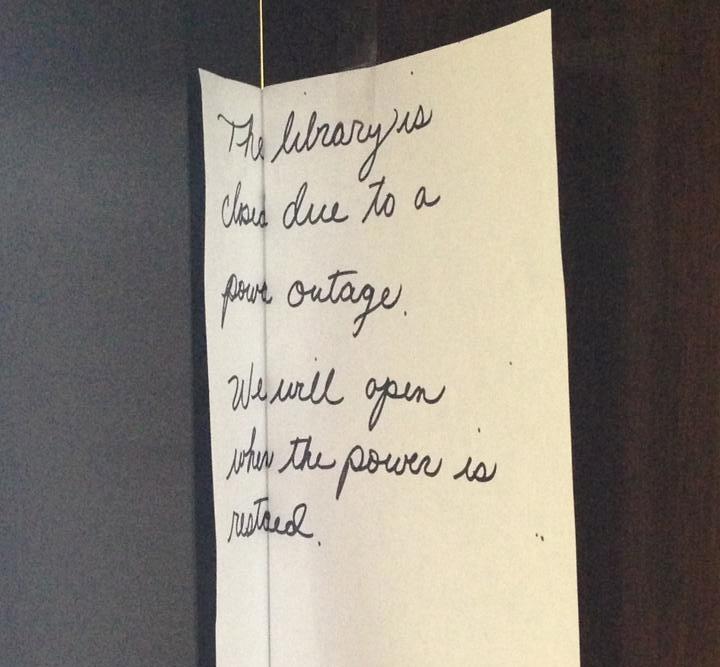 The library is
closed due to a
power outage.
We will open
when the power is
restored.